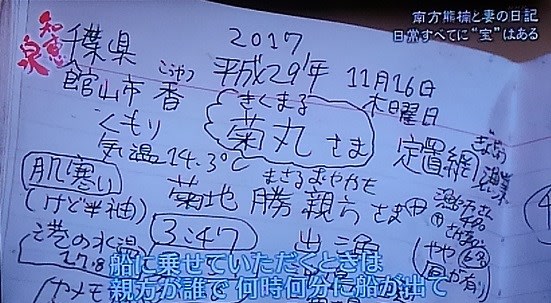 知恵泉
南方熊楠と妻の日記
日常すべてに“宝”はある
千葉県
2017
平成29年 11月16日
木曜日
館山市 香
こうやつ
きくまる
菊丸さま
くもり
気温14.3℃
定置網漁業
肌寒い
(けど半袖)
まさるおやかた
菊地 勝 親方さま
港の水温
17.8
3:47
出港
船に乗せていただくときは
親方が誰で 何時何分に船が出て